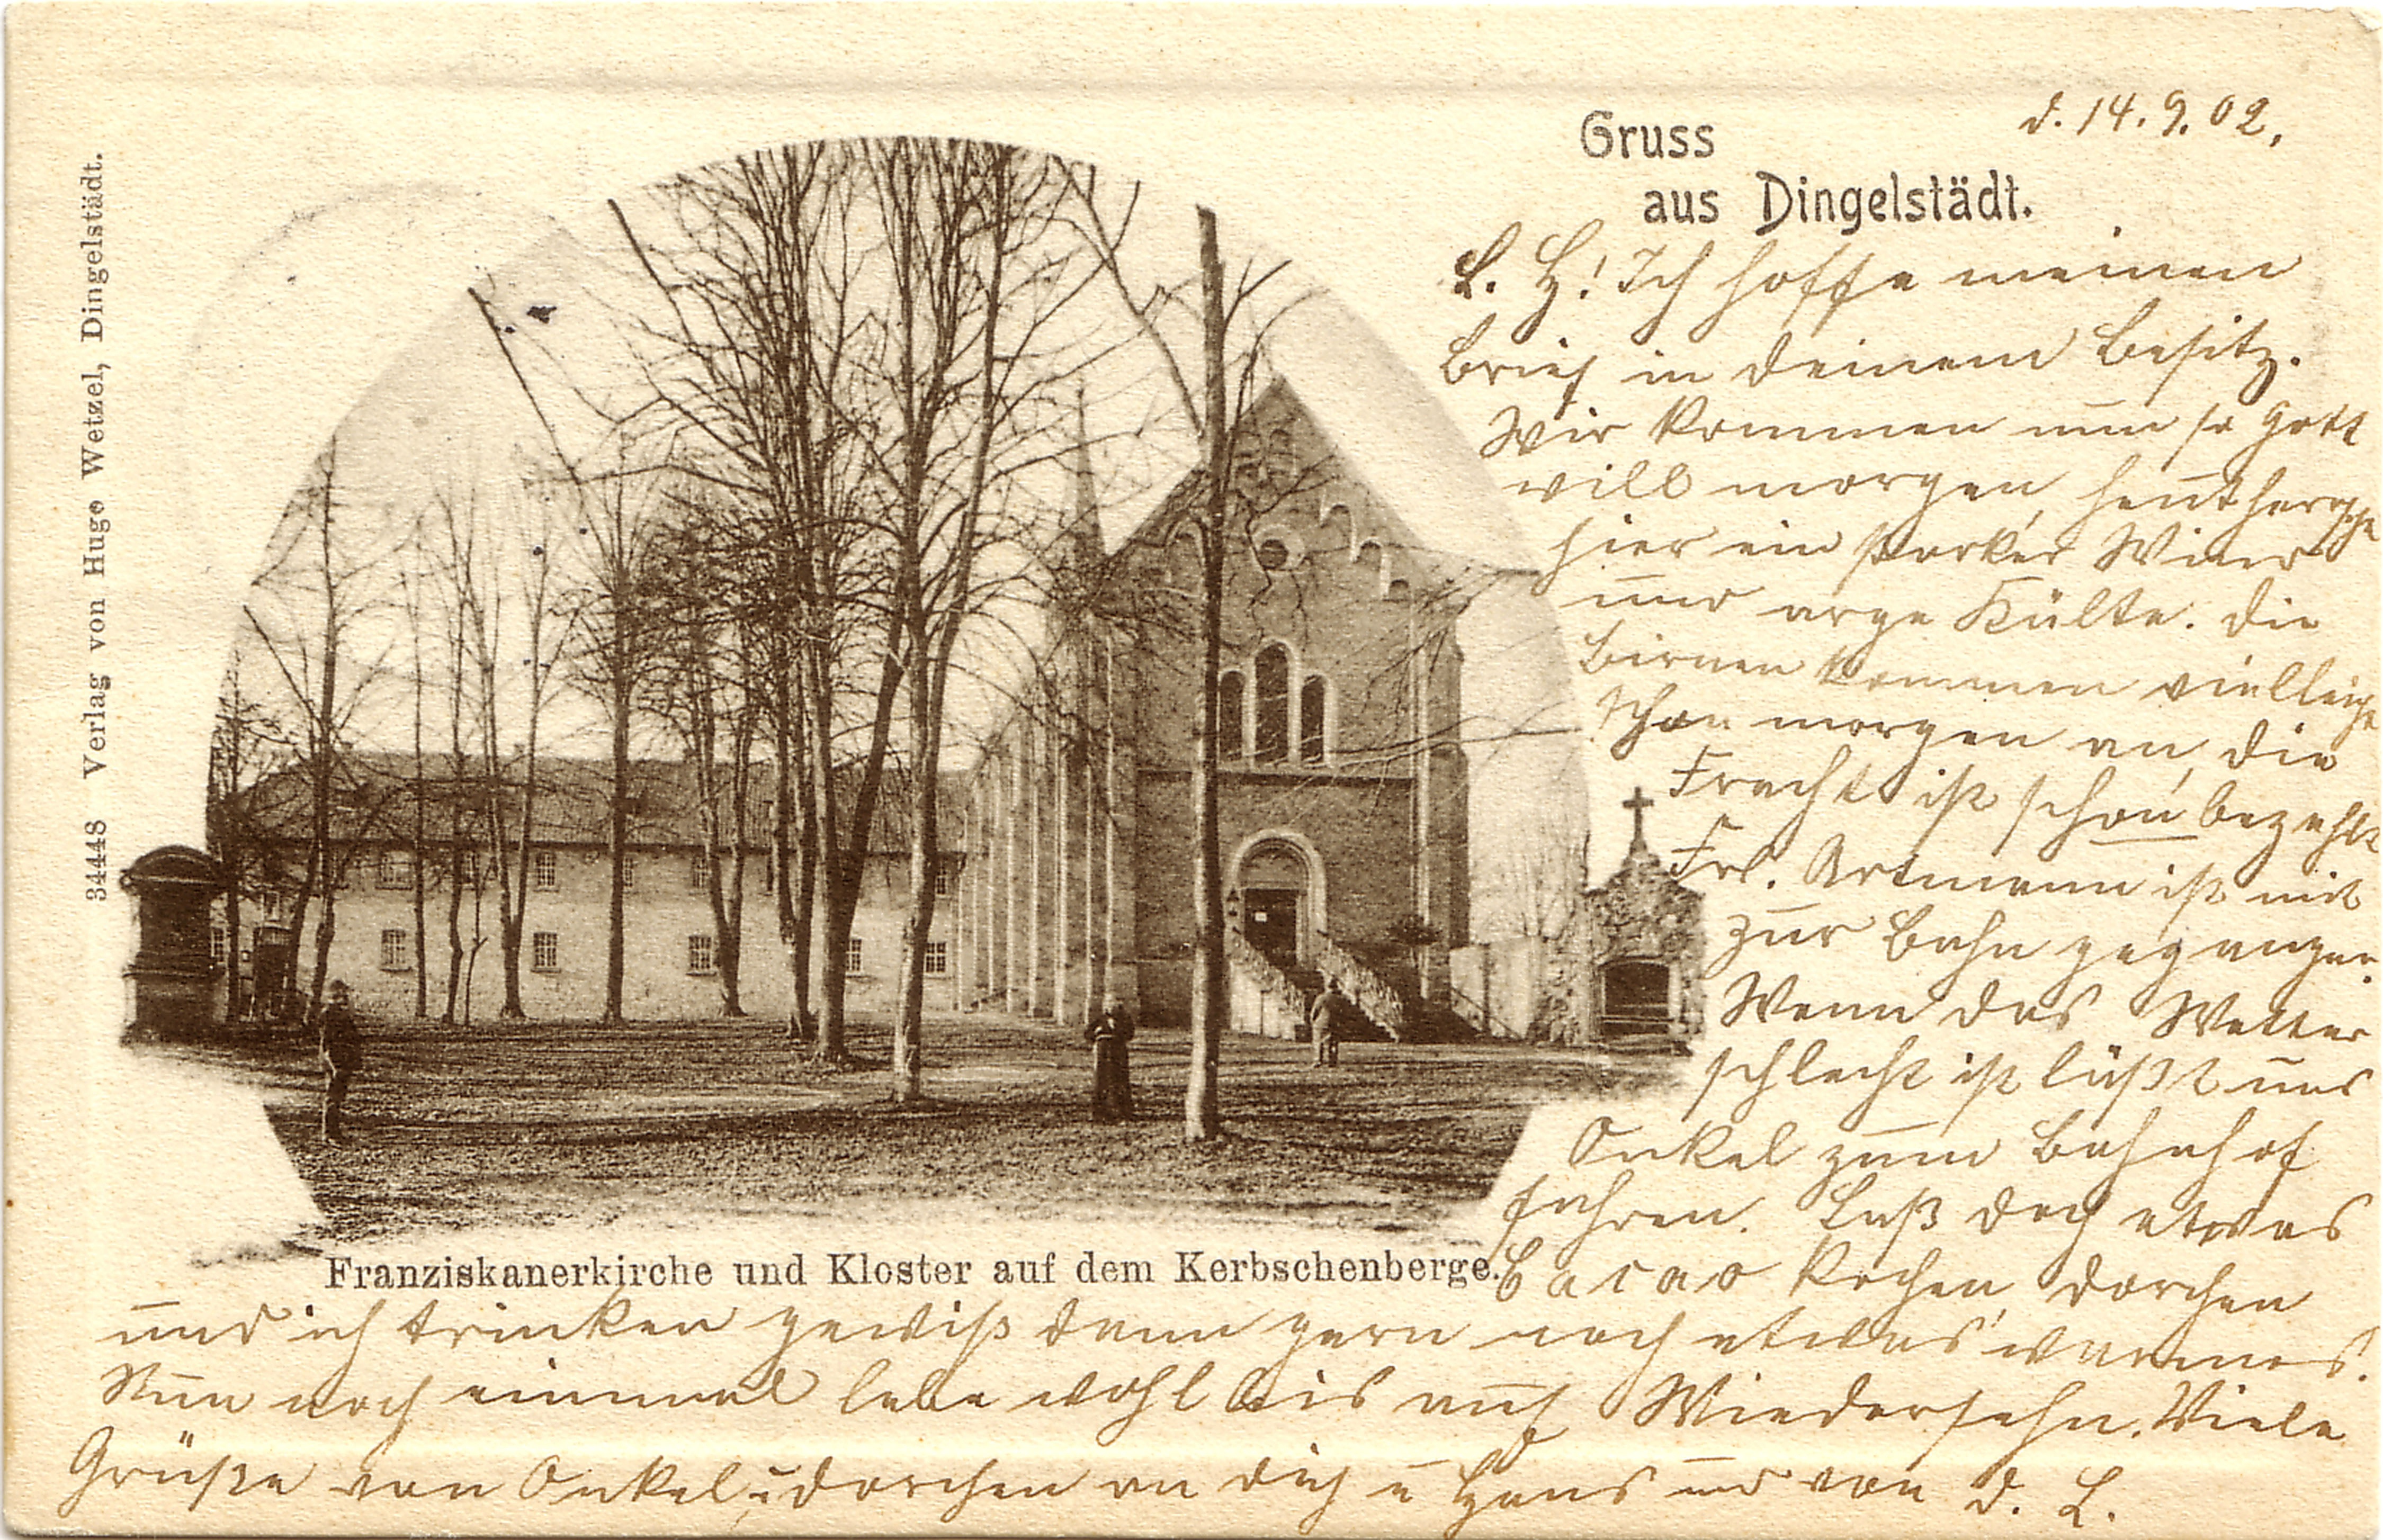 d. 14. 9. 02.
Gruss
aus Dingelstädt.
L. H! Ich hoffe meinen
Brief in Deinem Besitz.
Wir kommen nun so Gott
will morgen, heut herrscht
hier ein starker Wind
und arge Kälte. Die
Birnen kommen vielleicht
schon morgen an, die
Fracht ist schon bezahlt
Frl. Artmann ist mit
zur Bahn gegangen.
Wenn das Wetter
schlecht ist läßt uns
Onkel zum Bahnhof
fahren. Laß doch etwas
Cacao kochen, Dorchen
und ich trinken gewiß dann gern noch etwas warmes.
Nun noch einmal lebe wohl bis auf Wiedersehn. Viele
Grüße von Onkel, u Dorchen an Dich u Hans und von D. L.
Franziskanerkirche und Kloster auf dem Kerbschenberge.
34448 Verlag von Hugo Wetzel, Dingelstädt.